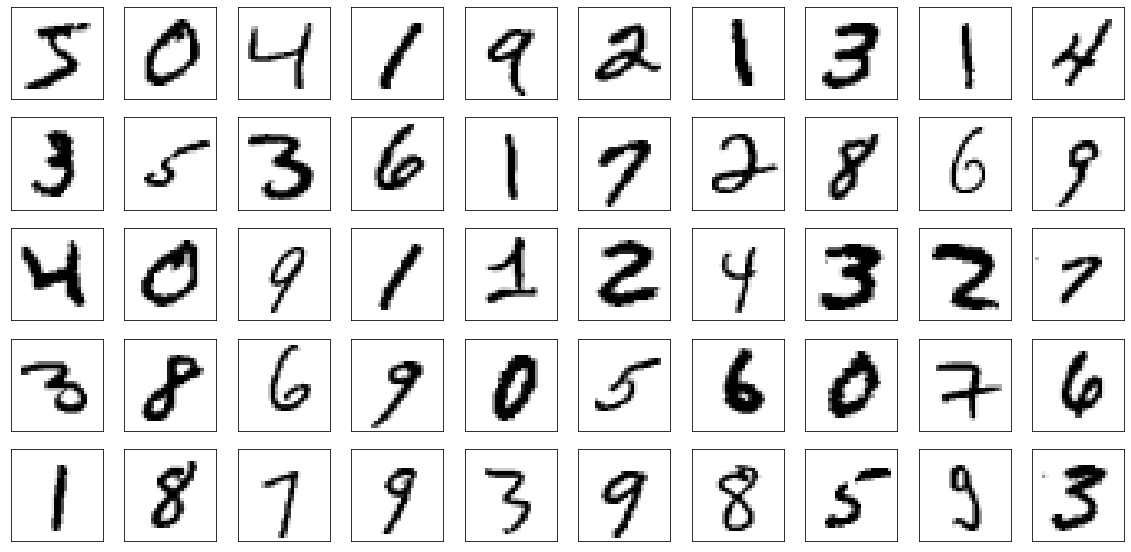 5 0 4 1 9 2 1 3 1 4
3 5 3 6 1 7 2 8 6 9
4 0 9 1 1 2 4 3 2 7
3 8 6 9 0 5 6 0 7 6
1 8 7 9 3 9 8 5 9 3